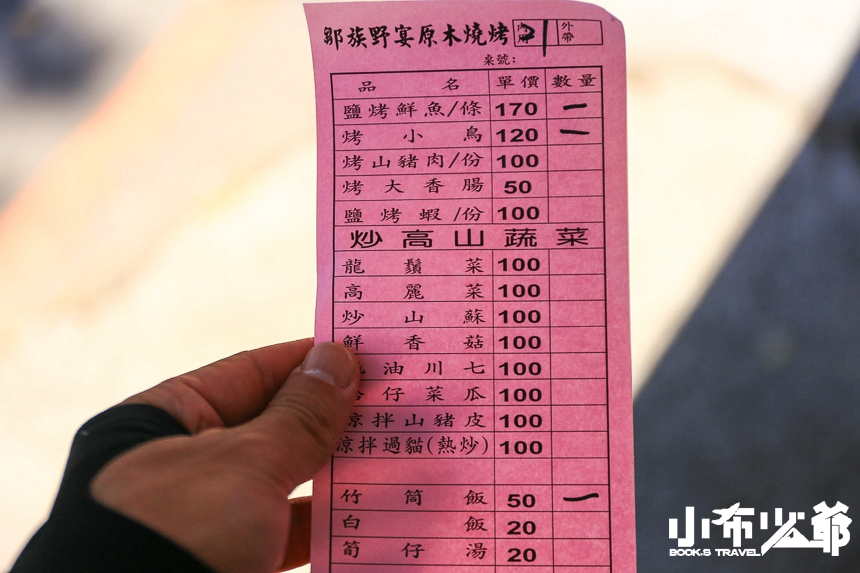 鄒族野宴原木燒烤 內用 21 外帶
桌號:
品名 單價 數量
鹽烤鮮魚/條 170 一
烤小鳥 120 一
烤山豬肉/份 100
烤大香腸 50
鹽烤蝦/份 100
炒高山蔬菜
龍鬚菜 100
高麗菜 100
炒山蘇 100
鮮香菇 100
油川七 100
仔菜瓜 100
涼拌山豬皮 100
涼拌過貓(熱炒) 100
竹筒飯 50 一
白飯 20
筍仔湯 20
小布少爺
BOOK.S TRAVEL